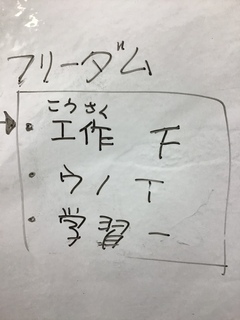 フリーダム
こうさく
・工作 F
・ウノ T
・学習 ー